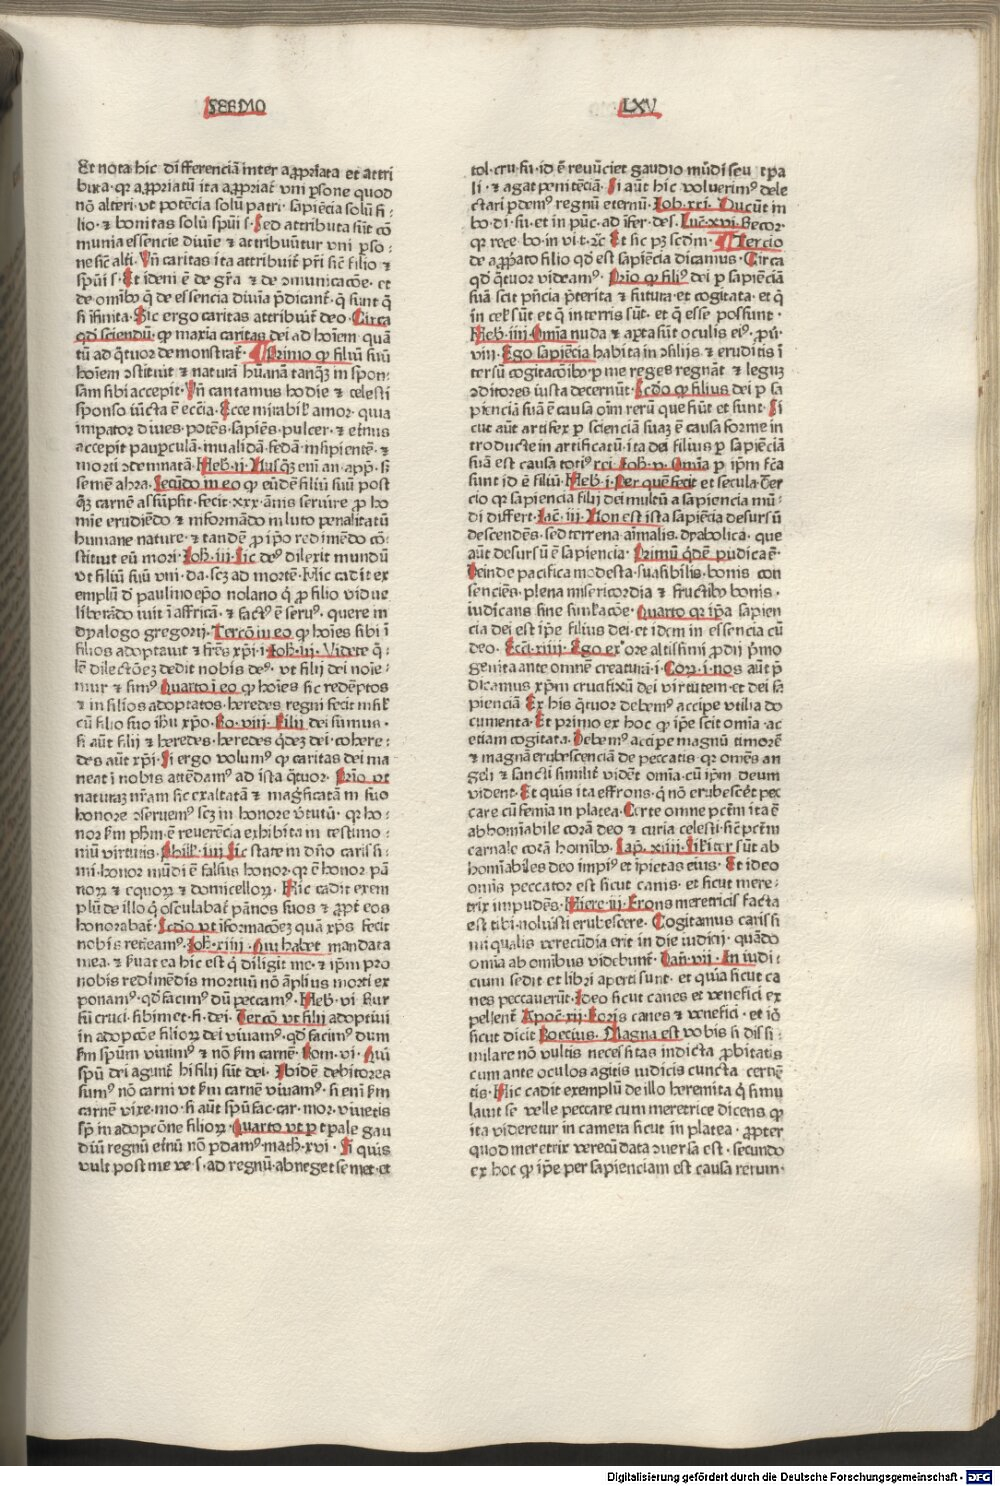 SERMO
LXV
Et nota hic differenciā inter appropriata et attri
buta · qr appropriatū ita appropriat̄ vni p̱sone quod
nō alteri · vt potēcia solū patri · sapiēcia solū fi⸗
lio · ⁊ bonitas solū spūi s · Sed attributa sūt cō
munia essencie diuīe ⁊ attribuūtur vni p̱so⸗
ne sic̄ alti · Vn̄ caritas ita attribuit̄ pr̄i sic̄ filio ⁊
spūi s · Et idem ē de gr̄a ⁊ de ↄmunicacōe · et
de om̄ibꝯ q̄ de essencia diuīa p̄dicant̄ · q̄ sunt q̄
si īfinita · Sic ergo caritas attribuit̄ deo · Circa
qd̓ sciendū · ꝙ maxīa caritas dei ad hoīem quā
tū ad q̄tuor demonstrat̄ · Primo ꝙ filiū suū
hoīem ↄstituit ⁊ naturā hūanā tanqꝫ in spon⸗
sam sibi accepit · Vn̄ cantamus hodie ⁊ celesti
sponso iūcta ē eccīa · Ecce mirabil̓ amor · quia
imꝑator diues · potēs · sapiēs · pulcer · ⁊ et̓nus
accepit pauꝑculā · inualidā · fedā · insipientē · ⁊
morti ↄdemnatā · Heb̓ · ij · Nusqꝫ em̄ an · app · sꝫ
semē abra · Secūdo in eo ꝙ eūdē filiū suū post
qꝫ carnē assūpsit · fecit · xxx · ānis seruire ꝓ ho
mīe erudiēdo ⁊ informādo in luto penalitatū
humane nature · ⁊ tandē ꝓ ip̄o redimēdo cō⸗
stituit eū mori · Joh̓ · iij · Sic deꝰ dilexit mundū
vt filiū suū vni · da · scꝫ ad mortē · Hic cadit ex
emplū d̓ paulino ep̄o nolano q̄ ꝓ filio vidue
liberādo iuit ī affricā · ⁊ factꝰ ē seruꝰ · quere in
dyalogo gregorij · Tercō in eo ꝙ hoīes sibi ī
filios adoptauit ⁊ fr̄es xp̄i · i · Joh̓ · iij · Videte q̄⸗
lē dilectōeꝫ dedit nobis deꝰ · vt filij dei noīe⸗
mur ⁊ simꝰ Quarto ī eo ꝙ hoīes sic redēptos
⁊ in filios adoptatos · heredes regni fecit
cū filio suo ihū xp̄o · Ro · viij · Filij dei sumus ·
si aūt filij ⁊ heredes · heredes q̄deꝫ dei · cohere⸗
des aūt xp̄i · Si ergo volumꝰ ꝙ caritas dei ma
neat ī nobis attēdamꝰ ad ista q̄tuor · Prīo vt
naturaꝫ nr̄am sic exaltatā ⁊ magficatā in suo
honore ↄseruemꝰ scꝫ in honore v̓tutū · qr ho⸗
nor s̓m ph̓m · ē reuerēcia exhibita in testimo⸗
niū virtutis · Phil̓ · iiij Sic state in dn̄o carissi⸗
mi · honor mūdi ē falsus honor · qr ē honor pā
noꝝ ⁊ equoꝝ ⁊ domicelloꝝ · Hic cadit exem
plū de illo q̄ osculabat̄ pānos suos ⁊ ꝓpt̓ eos
honorabat̄ · Scd̓o vt īformacōeꝫ quā xp̄s fecit
nobis retīeamꝰ · Joh̓ · xiiij · Qui habet mandata
mea · ⁊ s̓uat ea hic est q̄ diligit me · ⁊ ip̄m pro
nobis redimēdis mortuū nō āplius morti ex
ponamꝰ · qd̓ facimꝰ dū peccamꝰ · Heb̓ · vi · Rur
sū cruci · sibimet · fi · dei · Tercō vt filij adoptiui
in adopcōe filioꝝ dei viuamꝰ · qd̓ facimꝰ dum
s̓m spūm viuimꝰ ⁊ nō s̓m carnē · Rom · vi · Qui
spū dei agunt̄ hi filij sūt dei · Ibidē debitores
sumꝰ nō carni vt s̓m carnē viuamꝰ · si em̄ s̓m
carnē vixe · mo · si aūt spū fac · car · mor · viuetis
sꝑ in adopcōne filioꝝ · Quarto vt ꝓ tꝑale gau
diū regnū et̓nū nō ꝑdamꝰ · math̓ · xvi · Si quis
vult post me ve · s · ad regnū · abneget semet · et
tol · cru · su · id ē renūciet gaudio mūdi seu tꝑa
li · ⁊ agat penitēciā · Si aūt hic voluerimꝰ dele
ctari ꝑdemꝰ regnū eternū · Job · xxi · Ducūt in
bo · di · su · et in pūc · ad īfer · des · Luc̄ · xvi · Recor ·
qr rece · bo · in vi · t · ⁊c̄ Et sic pꝫ scd̓m · Tercio
de apꝓpato filio qd̓ est sapiēcia dicamus · Circa
qd̓ q̄tuor videamꝰ · Prīo ꝙ filiꝰ dei ꝑ sapiēciā
suā scit pn̄cia p̄terita ⁊ futura · et cogitata · et q̄
in cel̓ sūt et q̄ in terris sūt · et q̄ esse possunt ·
Heb̓ · iiij · Omīa nuda ⁊ aꝑta sūt oculis eiꝰ · ꝓu ·
viij · Ego sapiēcia habita in ↄsilijs ⁊ eruditis ī
tersū cogitacōibꝯ · ꝑ me reges regnāt ⁊ legū
ↄditores iusta decernūt · Scd̓o ꝙ filius dei ꝑ sa
piencīā suā ē causa oīm rerū que fiūt et sunt · Si
cut aūt artifex ꝑ scienciā suaꝫ ē causa forme in
troducte in artificatū · ita dei filius ꝑ sapiēciā
suā est causa totiꝰ rei · Joh̓ · p · Omīa ꝑ ip̄m fc̄a
sunt id ē filiū · Heb̓ · i · Per quē fecit et secula · Ter
cio qr sapiencia filij dei multū a sapiencia mū⸗
di differt · Jac̄ · iij · Non est ista sapiēcia desursū
descendēs · sed terrena aīmalis · dyabolica · que
aūt desursū ē sapiencia · Primū q̓dē pudica ē ·
Deinde pacifica modesta · suasibilis · bonis con
senciēs · plena misericordia ⁊ fructibꝯ bonis ·
iudicans sine simlacōe · Quarto qr ip̄a sapien
cia dei est ip̄e filius dei · et idem in essencia cū
deo · Eccī · xiiij · Ego ex ore altissimi ꝓdij p̓mo
genita ante omnē creaturā · i · Cor · i · nos aūt p̄
dicamus xp̄m crucifixū dei virtutem · et dei sa
pienciā Ex his q̄tuor debemꝰ accipe vtilia do
cumenta · Et primo ex hoc ꝙ ip̄e scit omīa · ac
etiam cogitata · Debemꝰ accipe magnū timorē
⁊ magnā erubescenciā de peccatis · qr omēs an
geli ⁊ sancti similit̓ vidēt omīa · cū ip̄m deum
vident · Et quis ita effrons · q̄ nō erubescēt pec
care cū femīa in platea · Certe omne pctm̄ ita ē
abhomīabile corā deo ⁊ curia celesti · sic̄ pctm̄
carnale corā homībꝯ · Sap̄ · xiiij · Sil̓iter sūt ab
homīabiles deo impiꝰ et īpietas eius · Et ideo
omīs peccator est sicut canis · et sicut mere⸗
trix impudēs · Hiere · iij · Frons meretricis facta
est tibi · noluisti erubescere · Cogitamus carissi
mi qualis verecūdia erit in die iudicij · quādo
omīa ab omībus videbunt̄ · Dan̄ · vij · In iudi⸗
cium sedit et libri aperti sunt · et quia sicut ca
nes peccauerūt · Ideo sicut canes et venefici ex
pellent̄ Apoc̄ · xij · Foris canes ⁊ venefici · et iō
sicut dicit Boecius · Magna est vobis si dissi⸗
mulare nō vultis necessitas indicta ꝓbitatis
cum ante oculos agitis iudicis cuncta cernē
tis · Hic cadit exemplū de illo heremita q̄ simu
lauit se velle peccare cum meretrice dicens ꝙ
ita videretur in camera sicut in platea · ꝓpter
quod meretrix verecūdata ↄuersa est · secundo
ex hoc ꝙ ip̄e per sapienciam est causa rerum ·
Digitalisierung gefördert durch die Deutsche Forschungsgemeinschaft - DFG